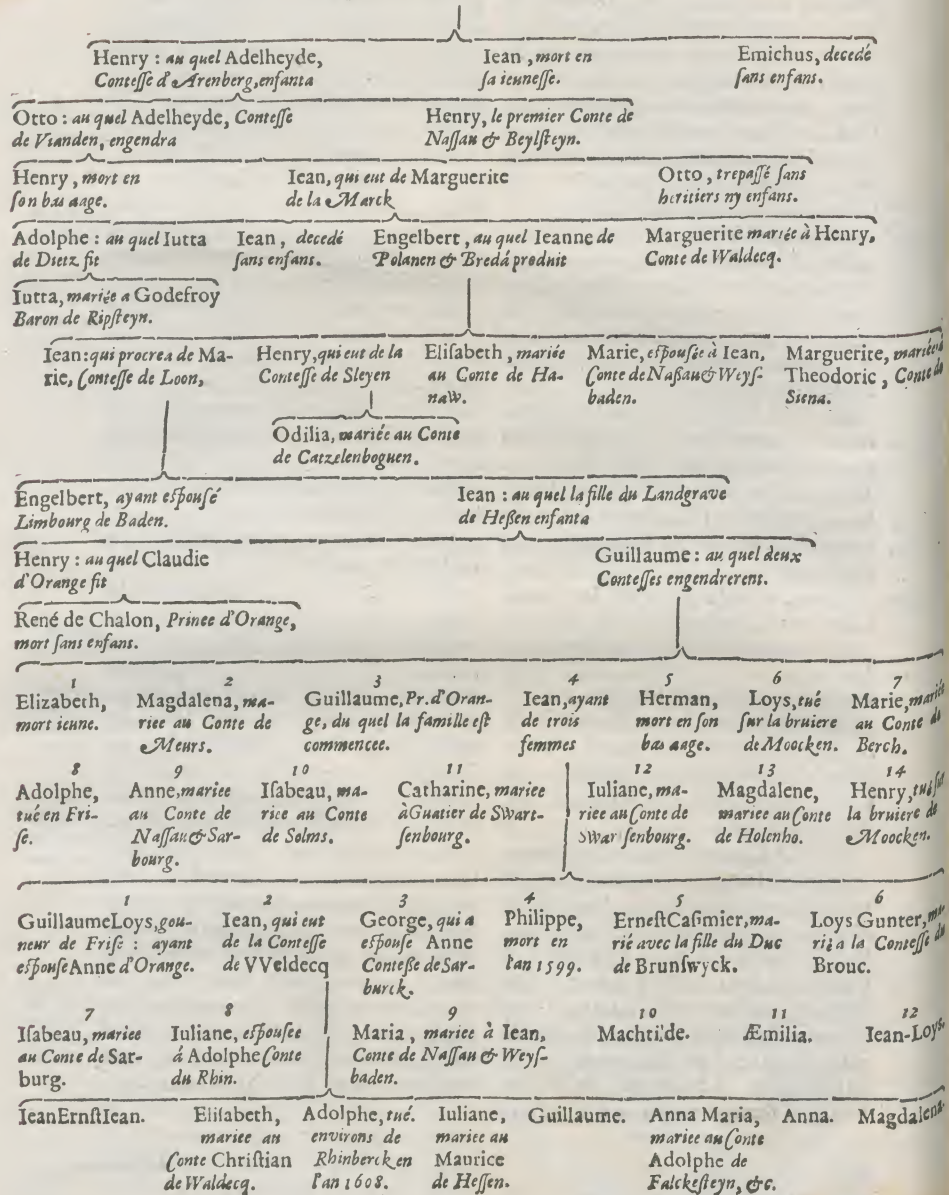 Henry : au quel Adelheyde,
Contesse d'Arenberg, enfanta
Iean , mort en
sa ieunesse.
Emichus, decedé
sans enfans.
Otto : au quel Adelheyde, Contesse
de Vianden, engendra
Henry, le premier Conte de
Nassau & Beylsteyn.
Henry , mort en
son bas aage.
Iean, qui eut de Marguerite
de la Marck
Otto , trepassé sans
heritiers ny enfans.
Adolphe : au quel Iutta
de Dietz fit
Iean , decedé
sans enfans.
Engelbert , au quel Ieanne de
Polanen & Bredá produit
Marguerite mariée à Henry,
Conte de Waldecq.
Iutta, mariée a Godefroy
Baron de Ripsteyn.
Iean: qui procrea de Ma-
rie, Contesse de Loon,
Henry, qui eut de la
Contesse de Sleyen
Elisabeth , mariée
au Conte de Ha-
naW.
Marie, espousée à Iean,
Conte de Naßau & Weys-
baden.
Marguerite, mariée à
Theodoric , Conte de
Siena.
Odilia, mariée au Conte
de Catzelenboguen.
Engelbert, ayant espousé
Limbourg de Baden.
Iean : au quel la fille du Landgrave
de Heßen enfanta
Henry : au quel Claudie
d'Orange fit
Guillaume : au quel deux
Contesses engendrerent.
René de Chalon, Prince d'Orange,
mort sans enfans.
1
Elizabeth,
mort ieune.
2
Magdalena, ma-
riee au Conte de
Meurs.
3
Guillaume, Pr. d'Oran-
ge, du quel la famille est
commencee.
4
Iean, ayant
de trois
femmes
5
Herman,
mort en son
bas aage.
6
Loys, tué
sur la bruiere
de Moocken.
7
Marie, mariée
au Conte de
Berch.
8
Adolphe,
tué en Fri-
se.
9
Anne, mariee
au Conte de
Nassau & Sar-
bourg.
10
Isabeau, ma-
riee au Conte
de Solms.
11
Catharine, mariee
à Guatier de Swart-
senbourg.
12
Iuliane, ma-
riee au Conte de
Swar senbourg.
13
Magdalene,
mariee au Conte
de Holenho.
14
Henry, tué sur
la bruiere de
Moocken.
1
Guillaume Loys, gou-
neur de Frise : ayant
espouse Anne d'Orange.
2
Iean, qui eut
de la Contesse
de VVeldecq
3
George, qui a
espouse Anne
Conteße de Sar-
burck.
4
Philippe,
mort en
l'an 1599.
5
Ernest Casimier, ma-
rié avec la fille du Duc
de Brunswyck.
6
Loys Gunter, ma-
rié a la Contesse de
Brouc.
7
Isabeau, mariee
au Conte de Sar-
burg.
8
Iuliane, espousee
á Adolphe Conte
du Rhin.
9
Maria , mariee à Iean,
Conte de Nassau & Weys-
baden.
10
Machtilde.
11
Æmilia.
12
Iean-Loys.
IeanErnstIean.
Elisabeth,
mariee au
Conte Christian
de Waldecq.
Adolphe, tué.
environs de
Rhinberck en
l'an 1608.
Iuliane,
mariee au
Maurice
de Hessen.
Guillaume.
Anna Maria,
mariee au Conte
Adolphe de
Falckesteyn, &c.
Anna.
Magdalena.